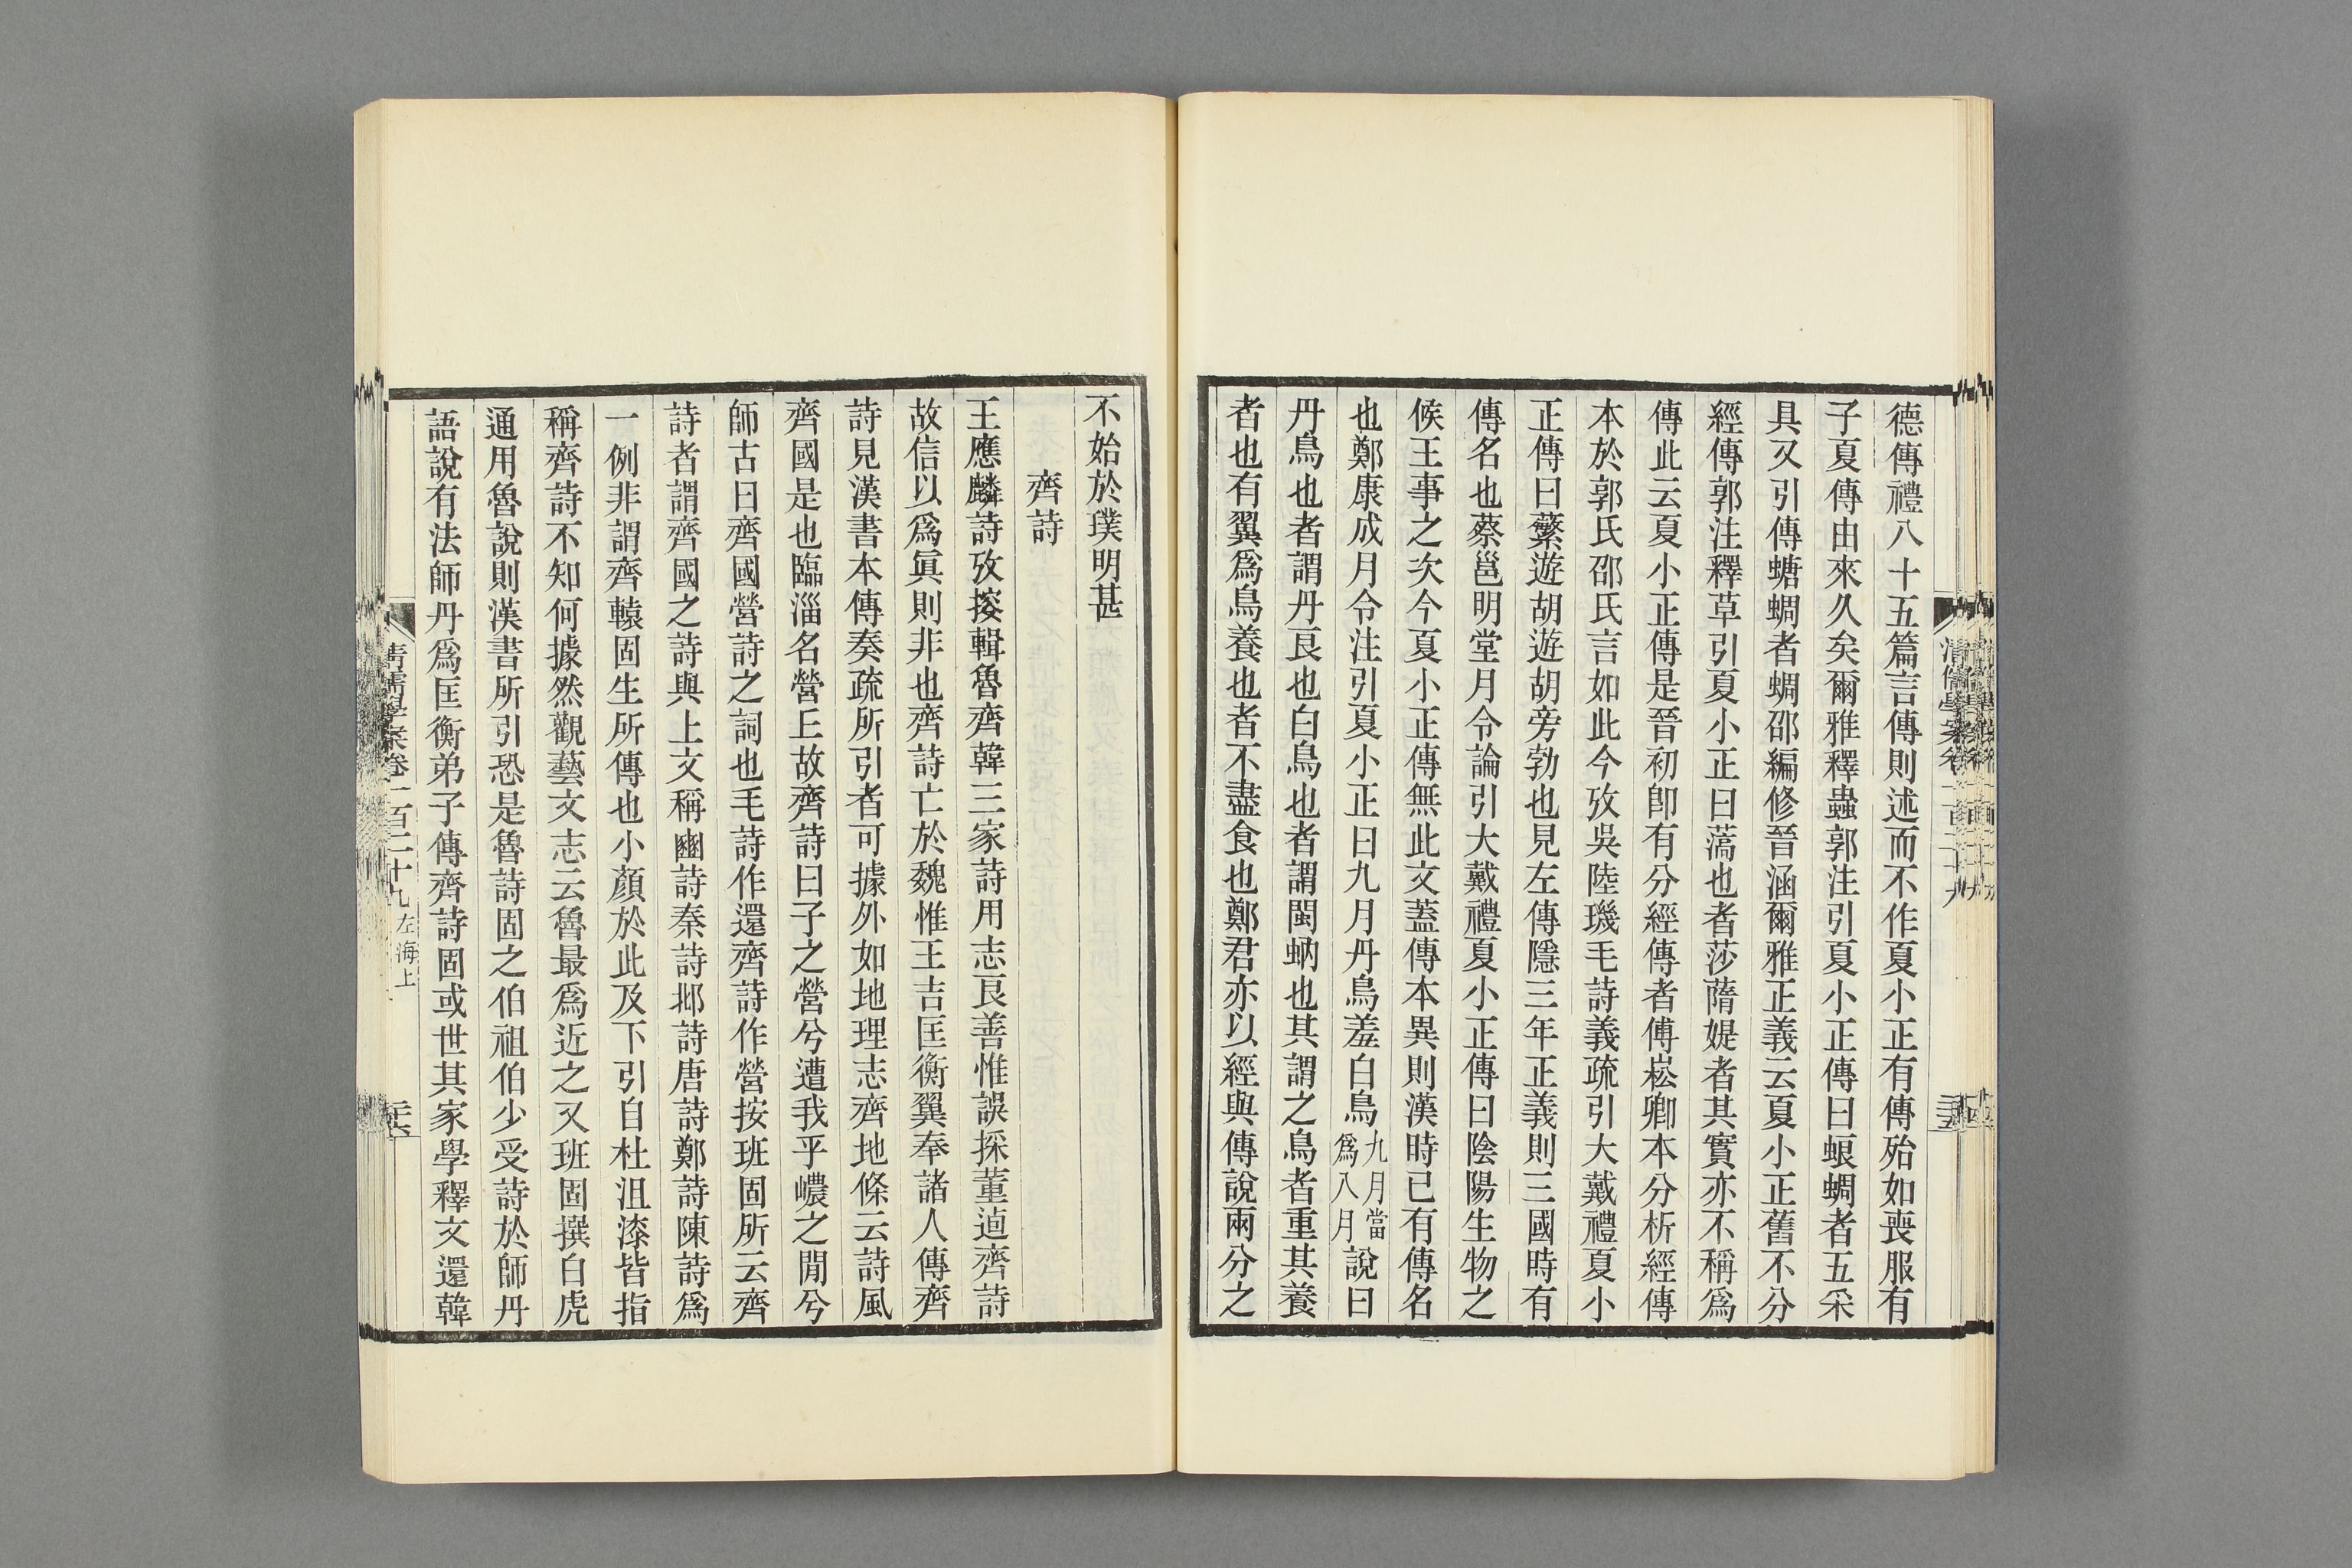 德傳禮八十五篇言傳則述而不作夏小正有傳殆如喪服有
子夏傳由來久矣爾雅釋蟲郭注引夏小正傳曰蜋蜩者五采
具又引傳螗蜩者蜩邵編修晉涵爾雅正義云夏小正舊不分
經傳郭注釋草引夏小正曰薃也者莎蓨媞者其實亦不稱爲
傳此云夏小正傳是晉初卽有分經傳者傅崧卿本分析經傳
本於郭氏邵氏言如此今攷吳陸璣毛詩義疏引大戴禮夏小
正傳曰蘩遊胡遊胡旁勃也見左傳隱三年正義則三國時有
傳名也蔡邕明堂月令論引大戴禮夏小正傳曰陰陽生物之
候王事之次今夏小正傳無此文蓋傳本異則漢時已有傳名
也鄭康成月令注引夏小正曰九月丹鳥羞白鳥九月當爲八月說曰
丹鳥也者謂丹良也白鳥也者謂閩蚋也其謂之鳥者重其養
者也有翼爲鳥養也者不盡食也鄭君亦以經與傳說兩分之
不始於璞明甚
齊詩
王應麟詩攷掇輯魯齊韓三家詩用志良善惟誤採董逌齊詩
故信以爲眞則非也齊詩亡於魏惟王吉匡衡翼奉諸人傳齊
詩見漢書本傳奏疏所引者可據外如地理志齊地條云詩風
齊國是也臨淄名營丘故齊詩曰子之營兮遭我乎嶩之閒兮
師古曰齊國營詩之詞也毛詩作還齊詩作營按班固所云齊
詩者謂齊國之詩與上文稱豳詩秦詩邶詩唐詩鄭詩陳詩爲
一例非謂齊轅固生所傳也小顏於此及下引自杜沮漆皆指
稱齊詩不知何據然觀藝文志云魯最爲近之又班固撰白虎
通用魯說則漢書所引恐是魯詩固之伯祖伯少受詩於師丹
語說有法師丹爲匡衡弟子傳齊詩固或世其家學釋文還韓
清儒學案卷一百二十九 左海上
二十六